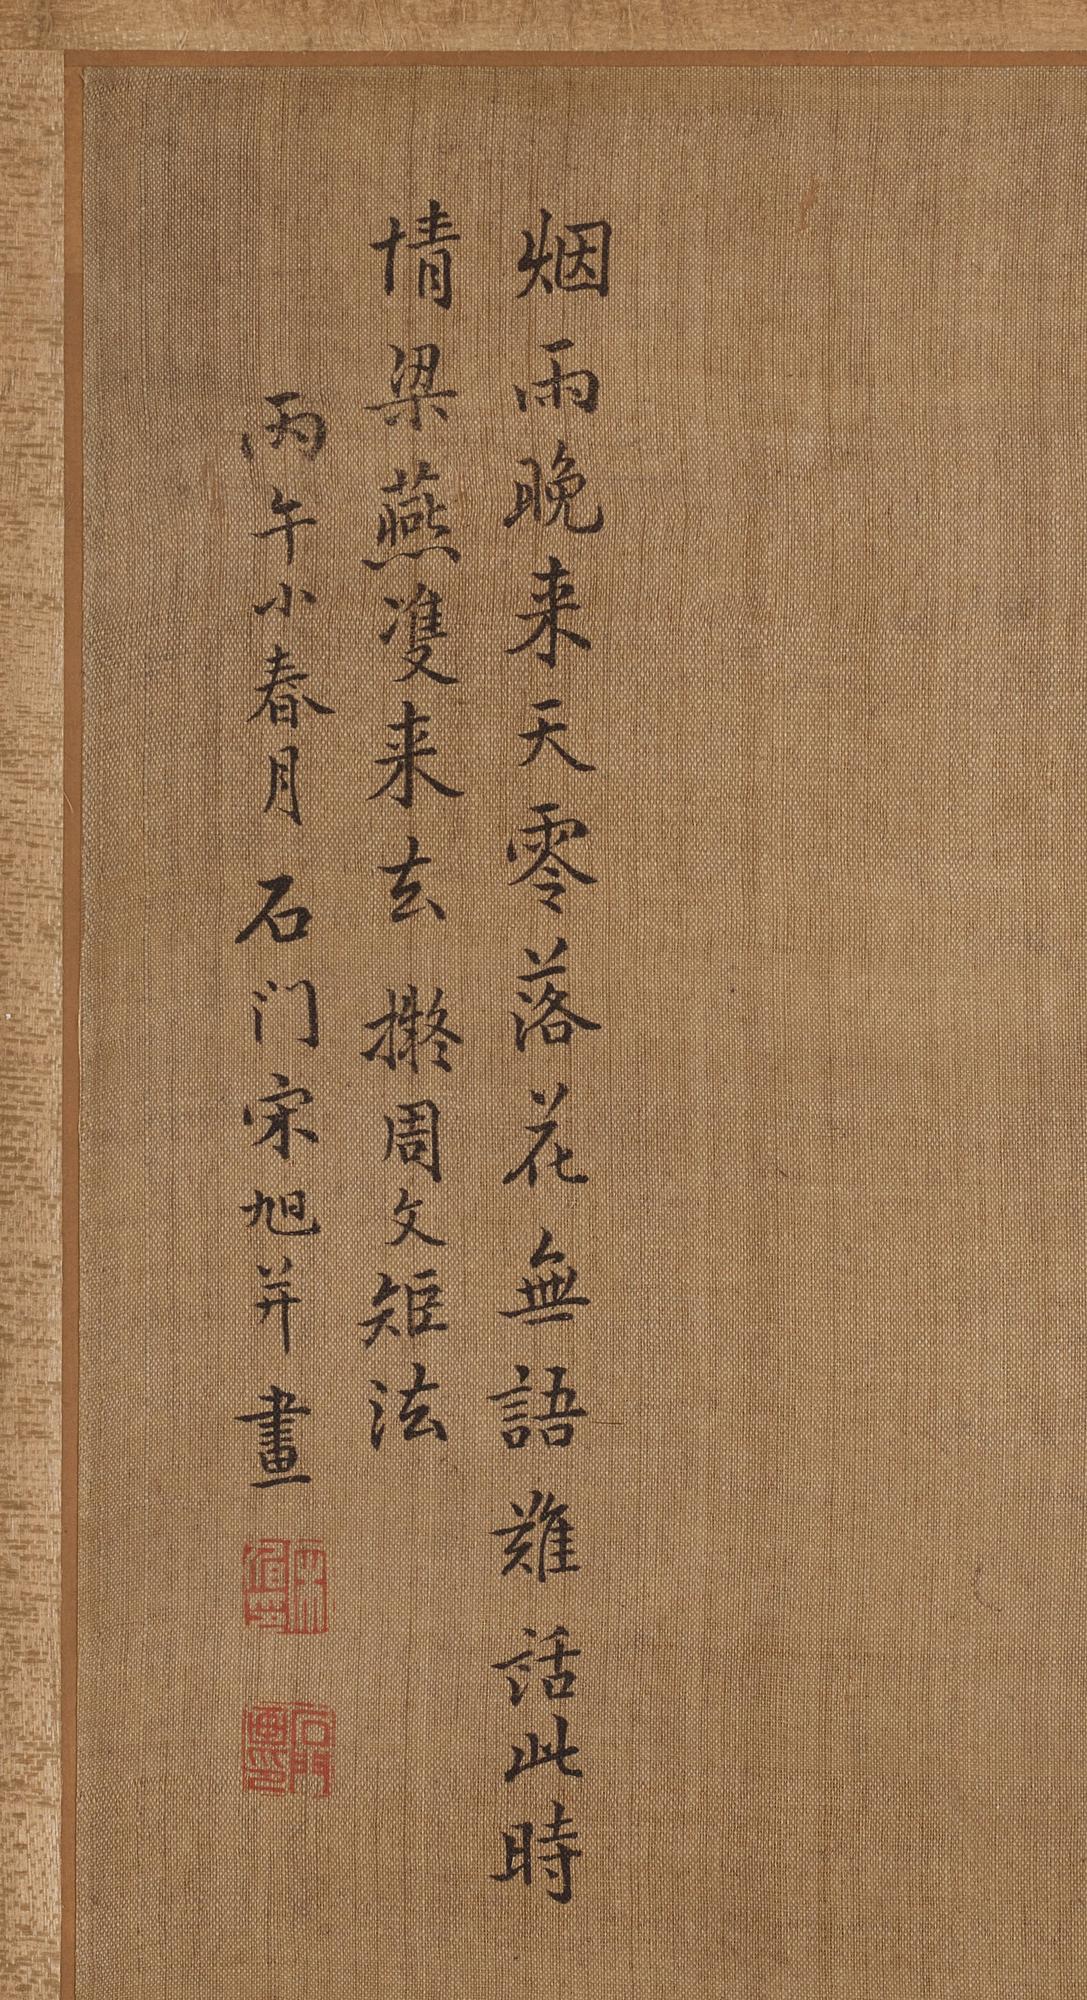 烟雨晚来天零落花無語難話此時
情梁燕雙来去擬周文矩法
丙午小春月石门宋旭并畫
石門